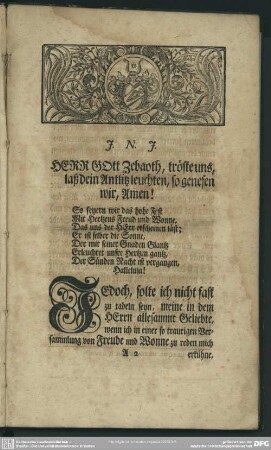 J. N. J.
HERR GOtt Zebaoth, tröste uns,
laß dein Antlitz leuchten, so genesen
wir, Amen!
So feyern wir das hohe Fest
Mit Hertzens Freud und Wonne,
Das uns der HErr erscheinen läst;
Er ist selber die Sonne,
Der mit seiner Gnaden Glantz
Erleuchtet unser Hertzen gantz,
Der Sünden Nacht ist vergangen,
Halleluia!
JEdoch, solte ich nicht fast
zu tadeln seyn, meine in dem
HErrn allesammt Geliebte,
wenn ich in einer so traurigen Ver-
sammlung von Freude und Wonne zu reden mich
A 2 erkühne,